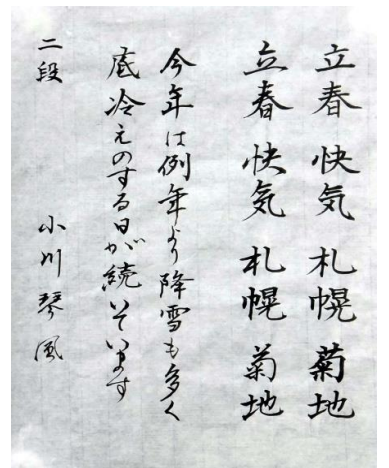 立春 快気 札幌 菊地
立春 快気 札幌 菊地
今年は例年より降雪も多く
底冷えのする日が続いています
二段 小川琴風